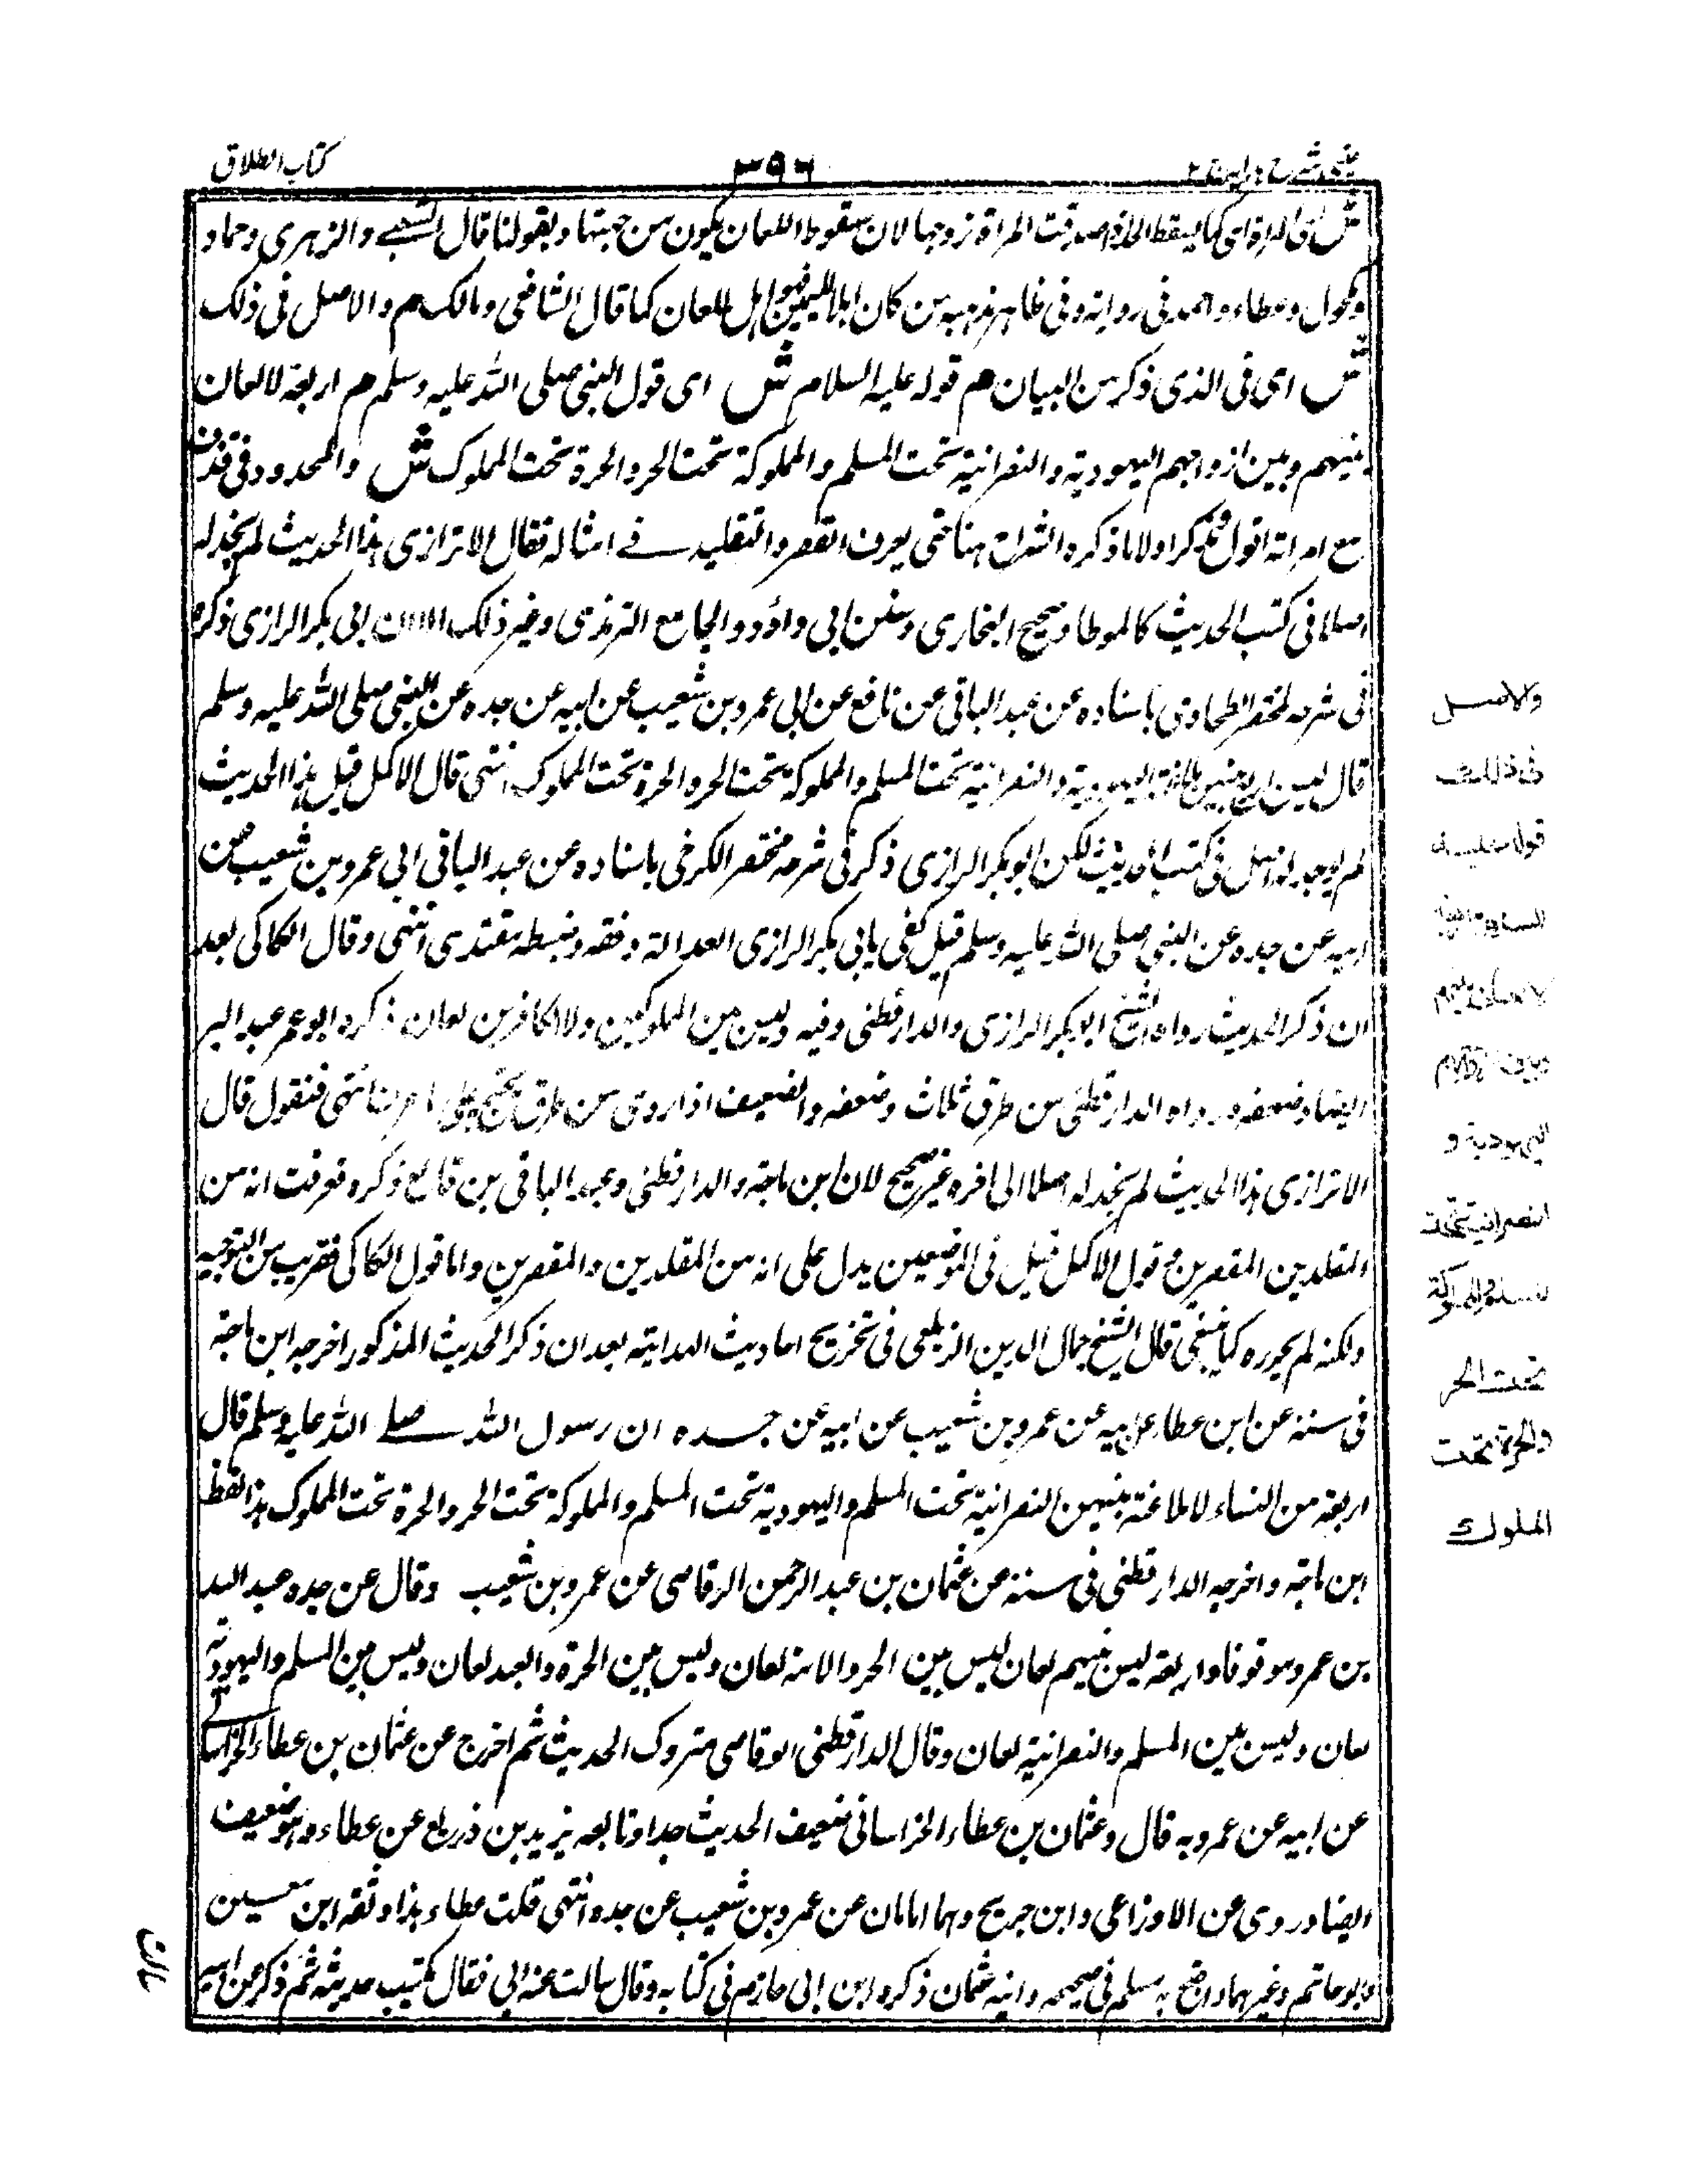 كتاب الطلاق
٣٩٦
عيني شرح هداية ج ٢
ش اى المراة اى كما يسقط الحد اذا صدقت المراة زوجها لان سقوط اللعان يكون من جهتها وبقولنا قال الشعبى والزهرى وحماد
ومكحول وعطاء واحمد فى رواية وفى ظاهر مذهبه من كان اهلا لليمين فهو اهل للعان كما قال الشافعى ومالك م والاصل فى ذلك
ش اى فى الذى ذكر من البيان م قوله عليه السلام ش اى قول النبى صلى الله عليه وسلم م اربعة لا لعان
بينهم وبين ازواجهم اليهودية والنصرانية تحت المسلم والمملوكة تحت الحر والحرة تحت المملوك ش والمحدود فى قذف
مع امراته اقول اولا ما ذكره الشراح هنا حتى يعرف القصر والتقليد فى امثاله فقال الاترازى هذا الحديث لم نجد له
اصلا فى كتب الحديث كالموطا وصحيح البخارى وسنن ابى داؤد والجامع الترمذى وغير ذلك الا ان ابى بكر الرازى ذكره
فى شرحه لمختصر الطحاوى باسناده عن عبد الباقى عن نافع عن ابى عمرو بن شعيب عن ابيه عن جده عن النبى صلى الله عليه وسلم
قال ليس بين اربع ملاعنة اليهودية والنصرانية تحت المسلم والمملوكة تحت الحر والحرة تحت المملوك انتهى قال الاكمل قيل هذا الحديث
لم يوجد له اصل فى كتب الحديث لكن ابو بكر الرازى ذكر فى شرحه مختصر الكرخى باسناده عن عبد الباقى ابى عمرو بن شعيب عن
ابيه عن جده عن النبى صلى الله عليه وسلم قيل كفى بابى بكر الرازى العدالة وفقه وضبطه مقتدى انتهى وقال الكاكى بعد
ان ذكر الحديث رواه الشيخ ابو بكر الرازى والدارقطنى وفيه وليس بين المملوكين ولا الكافرين لعان ذكره ابو عمر عبد البر
ايضا وضعفه ورواه الدارقطنى من طرق ثلاث وضعفه والضعيف اذا روى من طرق يحتج به انتهى فنقول قال
الاترازى هذا الحديث لم نجد له اصلا الى اخره غير صحيح لان ابن ماجة والدارقطنى وعبد الباقى بن قانع ذكره فعرفت انه من
المقلدين المقصرين وقول الاكمل قيل فى الموضعين يدل على انه من المقلدين والمقصرين واما قول الكاكى فقريب من التوجيه
ولكنه لم يحرره كما ينبغى قال الشيخ جمال الدين الزيلعى فى تخريج احاديث الهداية بعد ان ذكر الحديث المذكور اخرجه ابن ماجة
فى سننه عن ابن عطاء عن ابيه عن عمرو بن شعيب عن ابيه عن جده ان رسول الله صلى الله عليه وسلم قال
اربعة من النساء لا ملاعنة بينهن النصرانية تحت المسلم واليهودية تحت المسلم والمملوكة تحت الحر والحرة تحت المملوك هذا لفظ
ابن ماجة واخرجه الدارقطنى فى سننه عن عثمان بن عبد الرحمن الرقاصى عن عمرو بن شعيب وقال عن جده عبد الله
بن عمرو موقوفا واربعة ليس بينهم لعان ليس بين الحر والامة لعان وليس بين الحرة والعبد لعان وليس بين المسلم واليهودية
لعان وليس بين المسلم والنصرانية لعان وقال الدارقطنى الوقاصى متروك الحديث ثم اخرج عن عثمان بن عطاء الخراسانى
عن ابيه عن عمرو به قال وعثمان بن عطاء الخراسانى ضعيف الحديث جدا وتابعه يزيد بن ذريع عن عطاء وهو ضعيف
ايضا وروى عن الاوزاعى وابن جريج وهما امامان عن عمرو بن شعيب عن جده انتهى قلت عطاء هذا وثقه ابن معين
وابو حاتم وغيرهما واحتج به مسلم فى صحيحه وابنه عثمان ذكره ابن ابى حازم فى كتابه وقال سالت عنه ابى فقال يكتب حديثه ثم ذكر عن ابيه
والاصل
فى ذلك
قوله عليه
السلام اربعة
لا لعان بينهم
وبين ازواجهم
اليهودية و
النصرانية تحت
المسلم والمملوكة
تحت الحر
والحرة تحت
المملوك